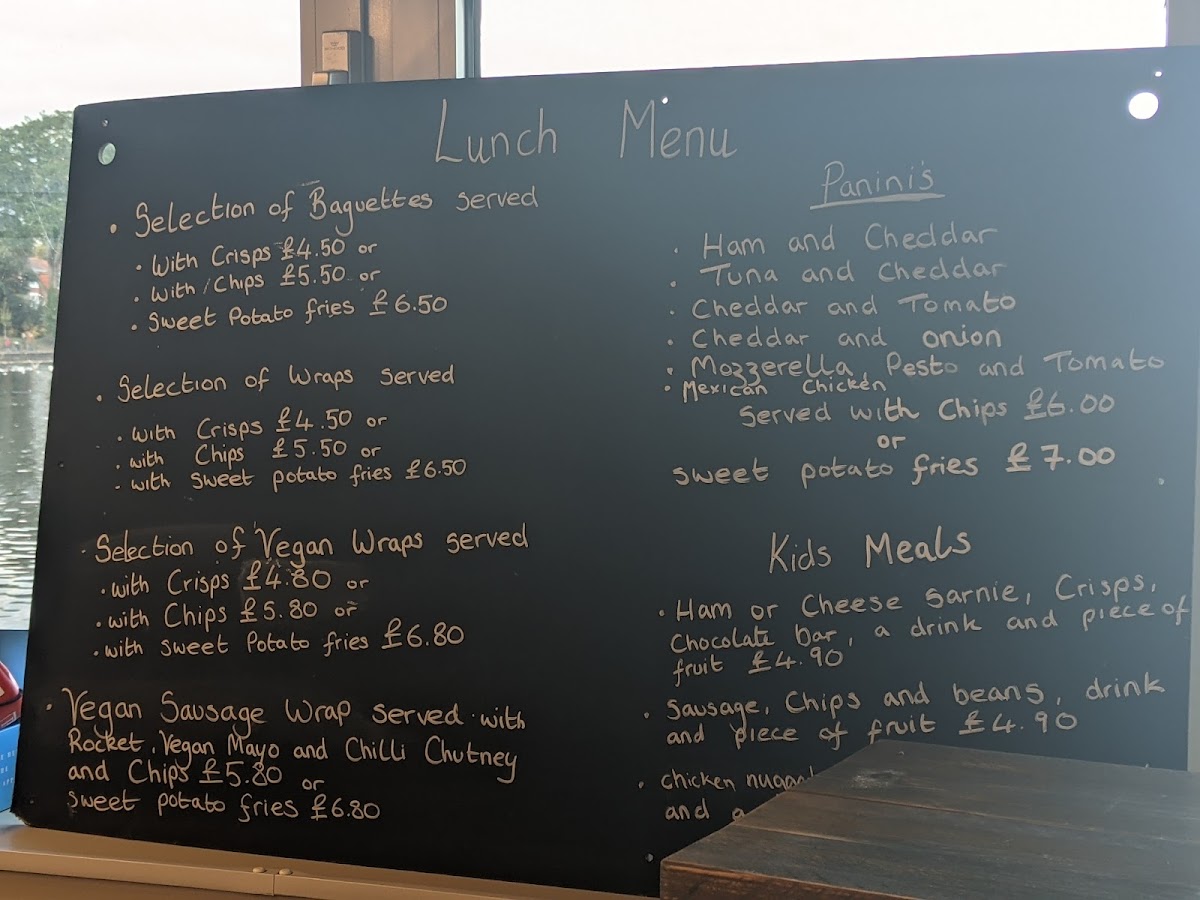 Lunch Menu
• Selection of Baguettes served
• with Crisps £4.50 or
• with Chips £5.50 or
• Sweet Potato fries £6.50
• Selection of Wraps served
• with Crisps £4.50 or
• with Chips £5.50 or
• with sweet potato fries £6.50
• Selection of Vegan Wraps served
• with Crisps £4.80 or
• with Chips £5.80 or
• with sweet Potato fries £6.80
• Vegan Sausage Wrap served with
Rocket, Vegan Mayo and Chilli Chutney
and Chips £5.80 or
sweet potato fries £6.80
Panini's
• Ham and Cheddar
• Tuna and Cheddar
• Cheddar and Tomato
• Cheddar and onion
• Mozzerella, Pesto and Tomato
• Mexican Chicken
Served with Chips £6.00
or
sweet potato fries £7.00
Kids Meals
• Ham or Cheese Sarnie, Crisps,
Chocolate bar, a drink and piece of
fruit £4.90
• Sausage, Chips and beans, drink
and piece of fruit £4.90
• chicken
and